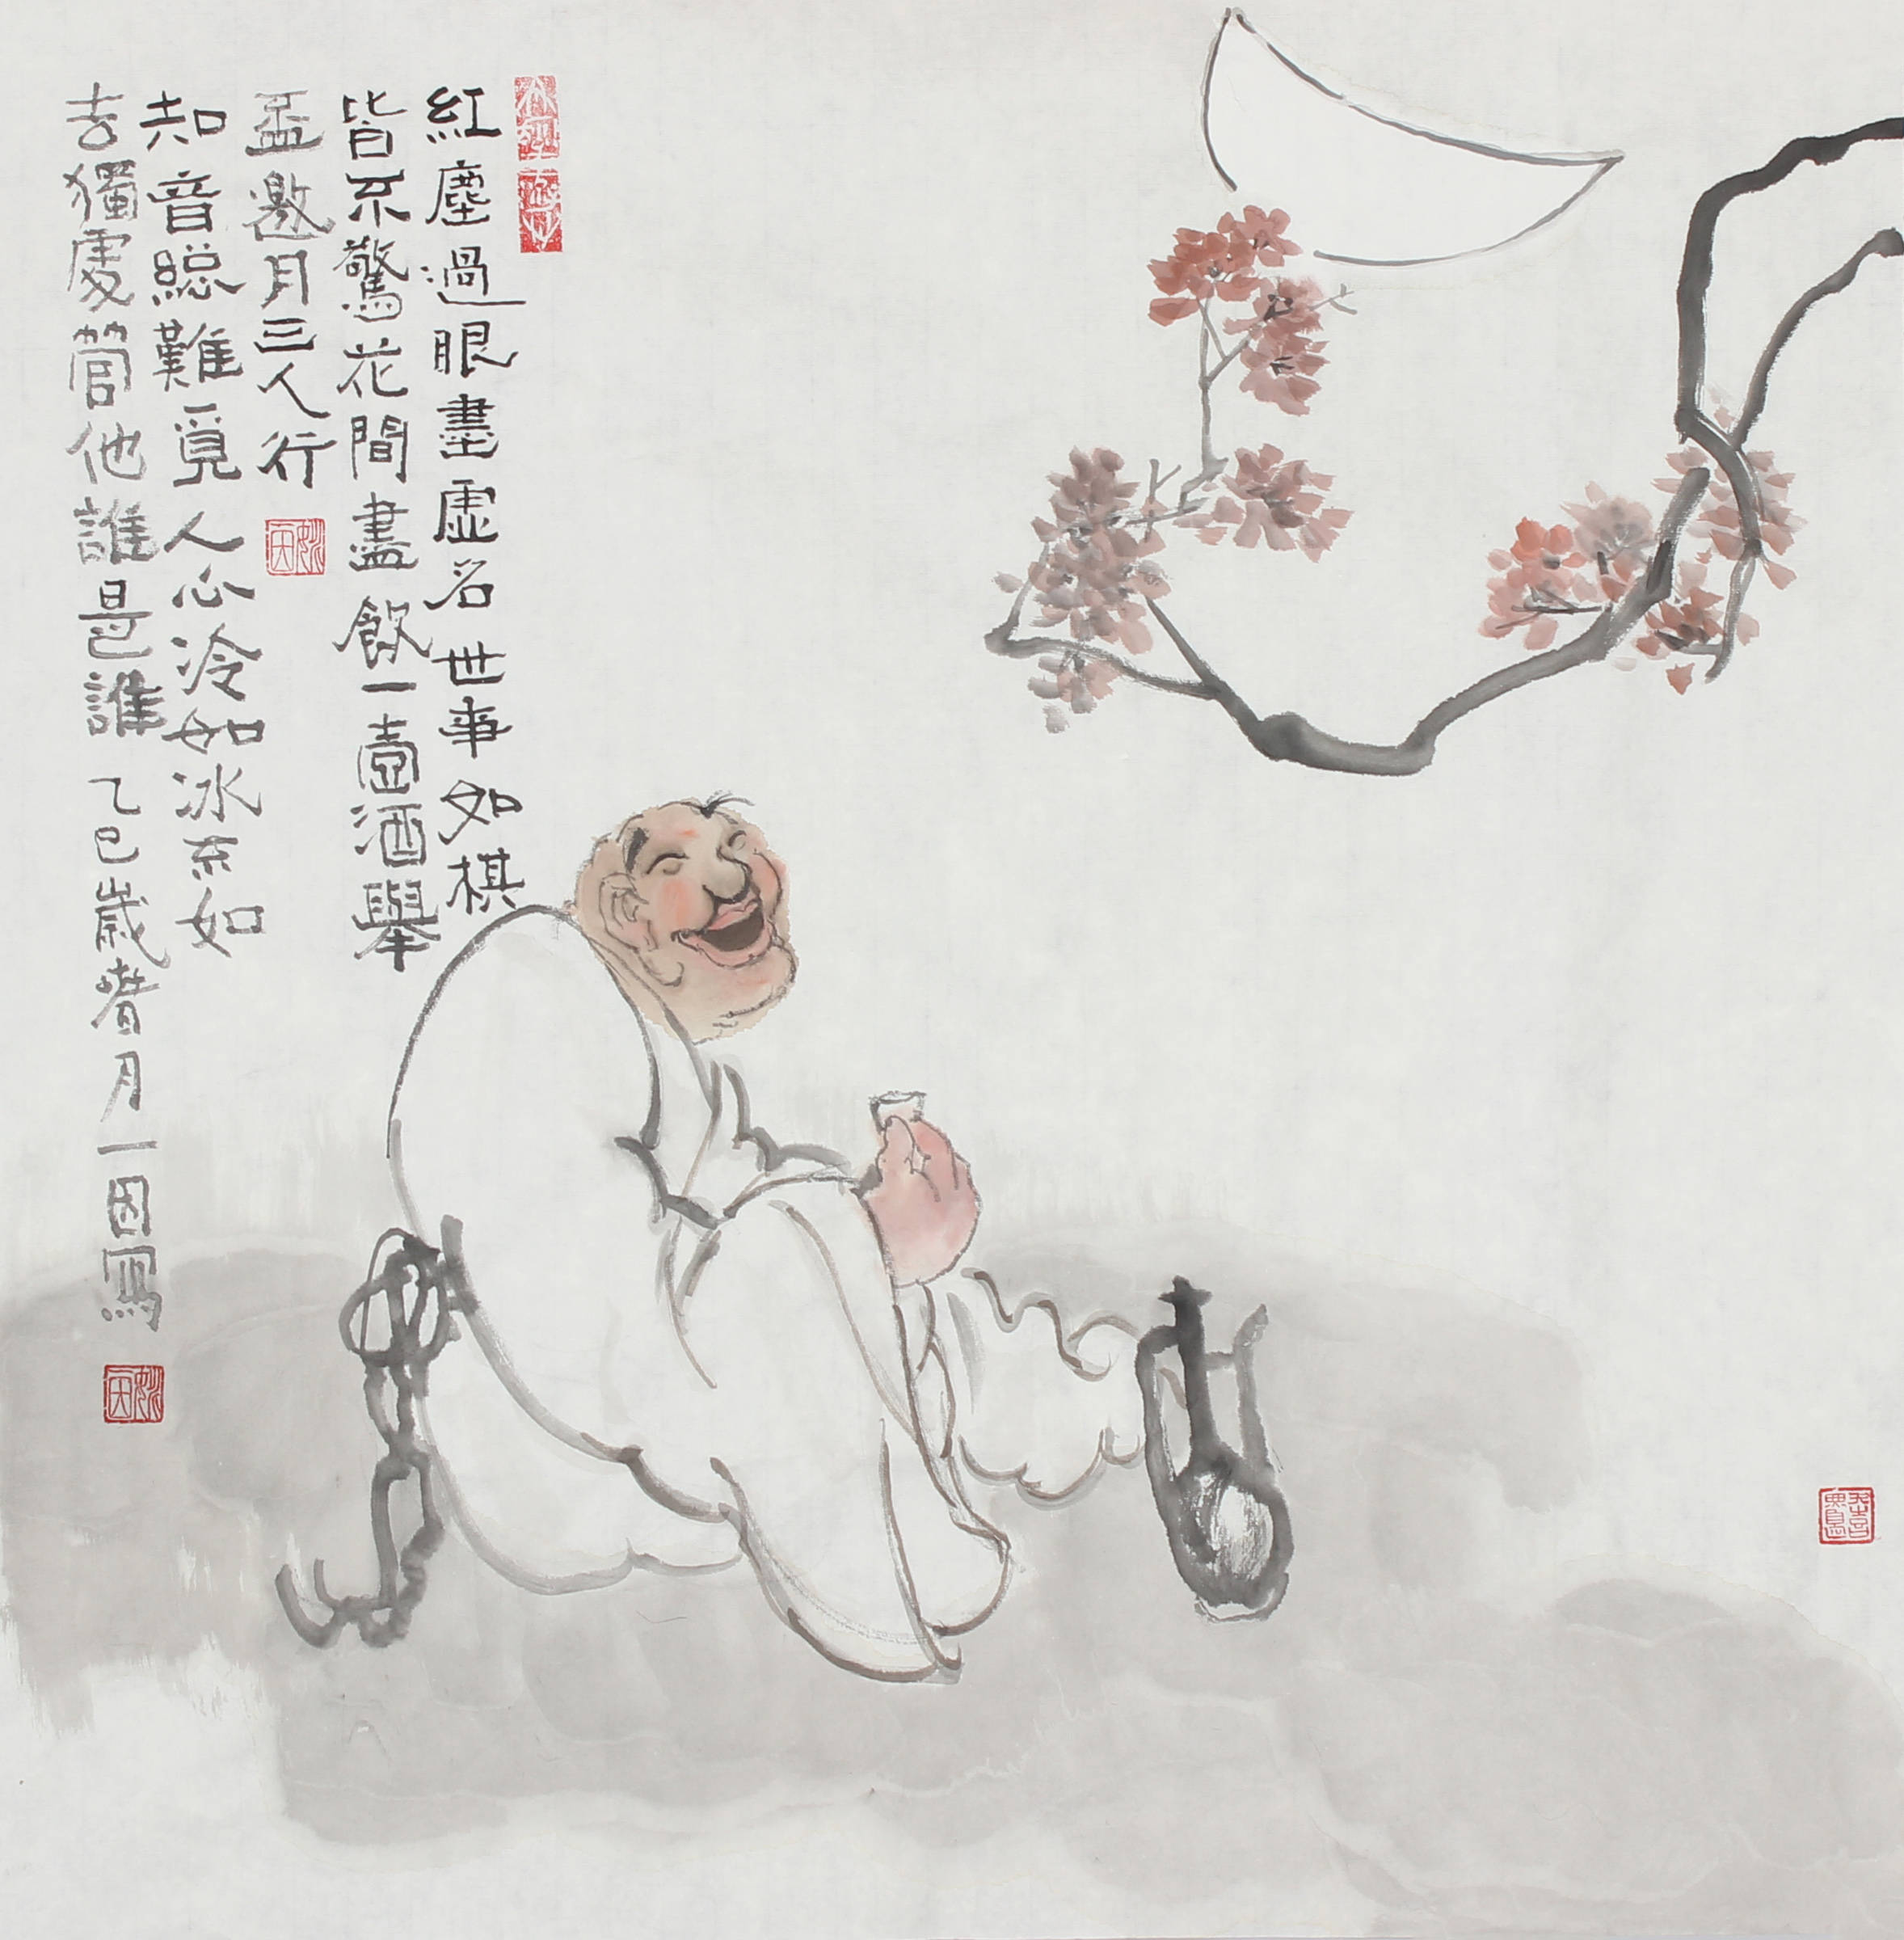 紅塵過眼盡虛名世事如棋
皆不驚花間盡飲一壺酒舉
盃邀月三人行
知音總難覓人心冷如冰不如
去獨處管他誰是誰 乙巳歲春月一因寫